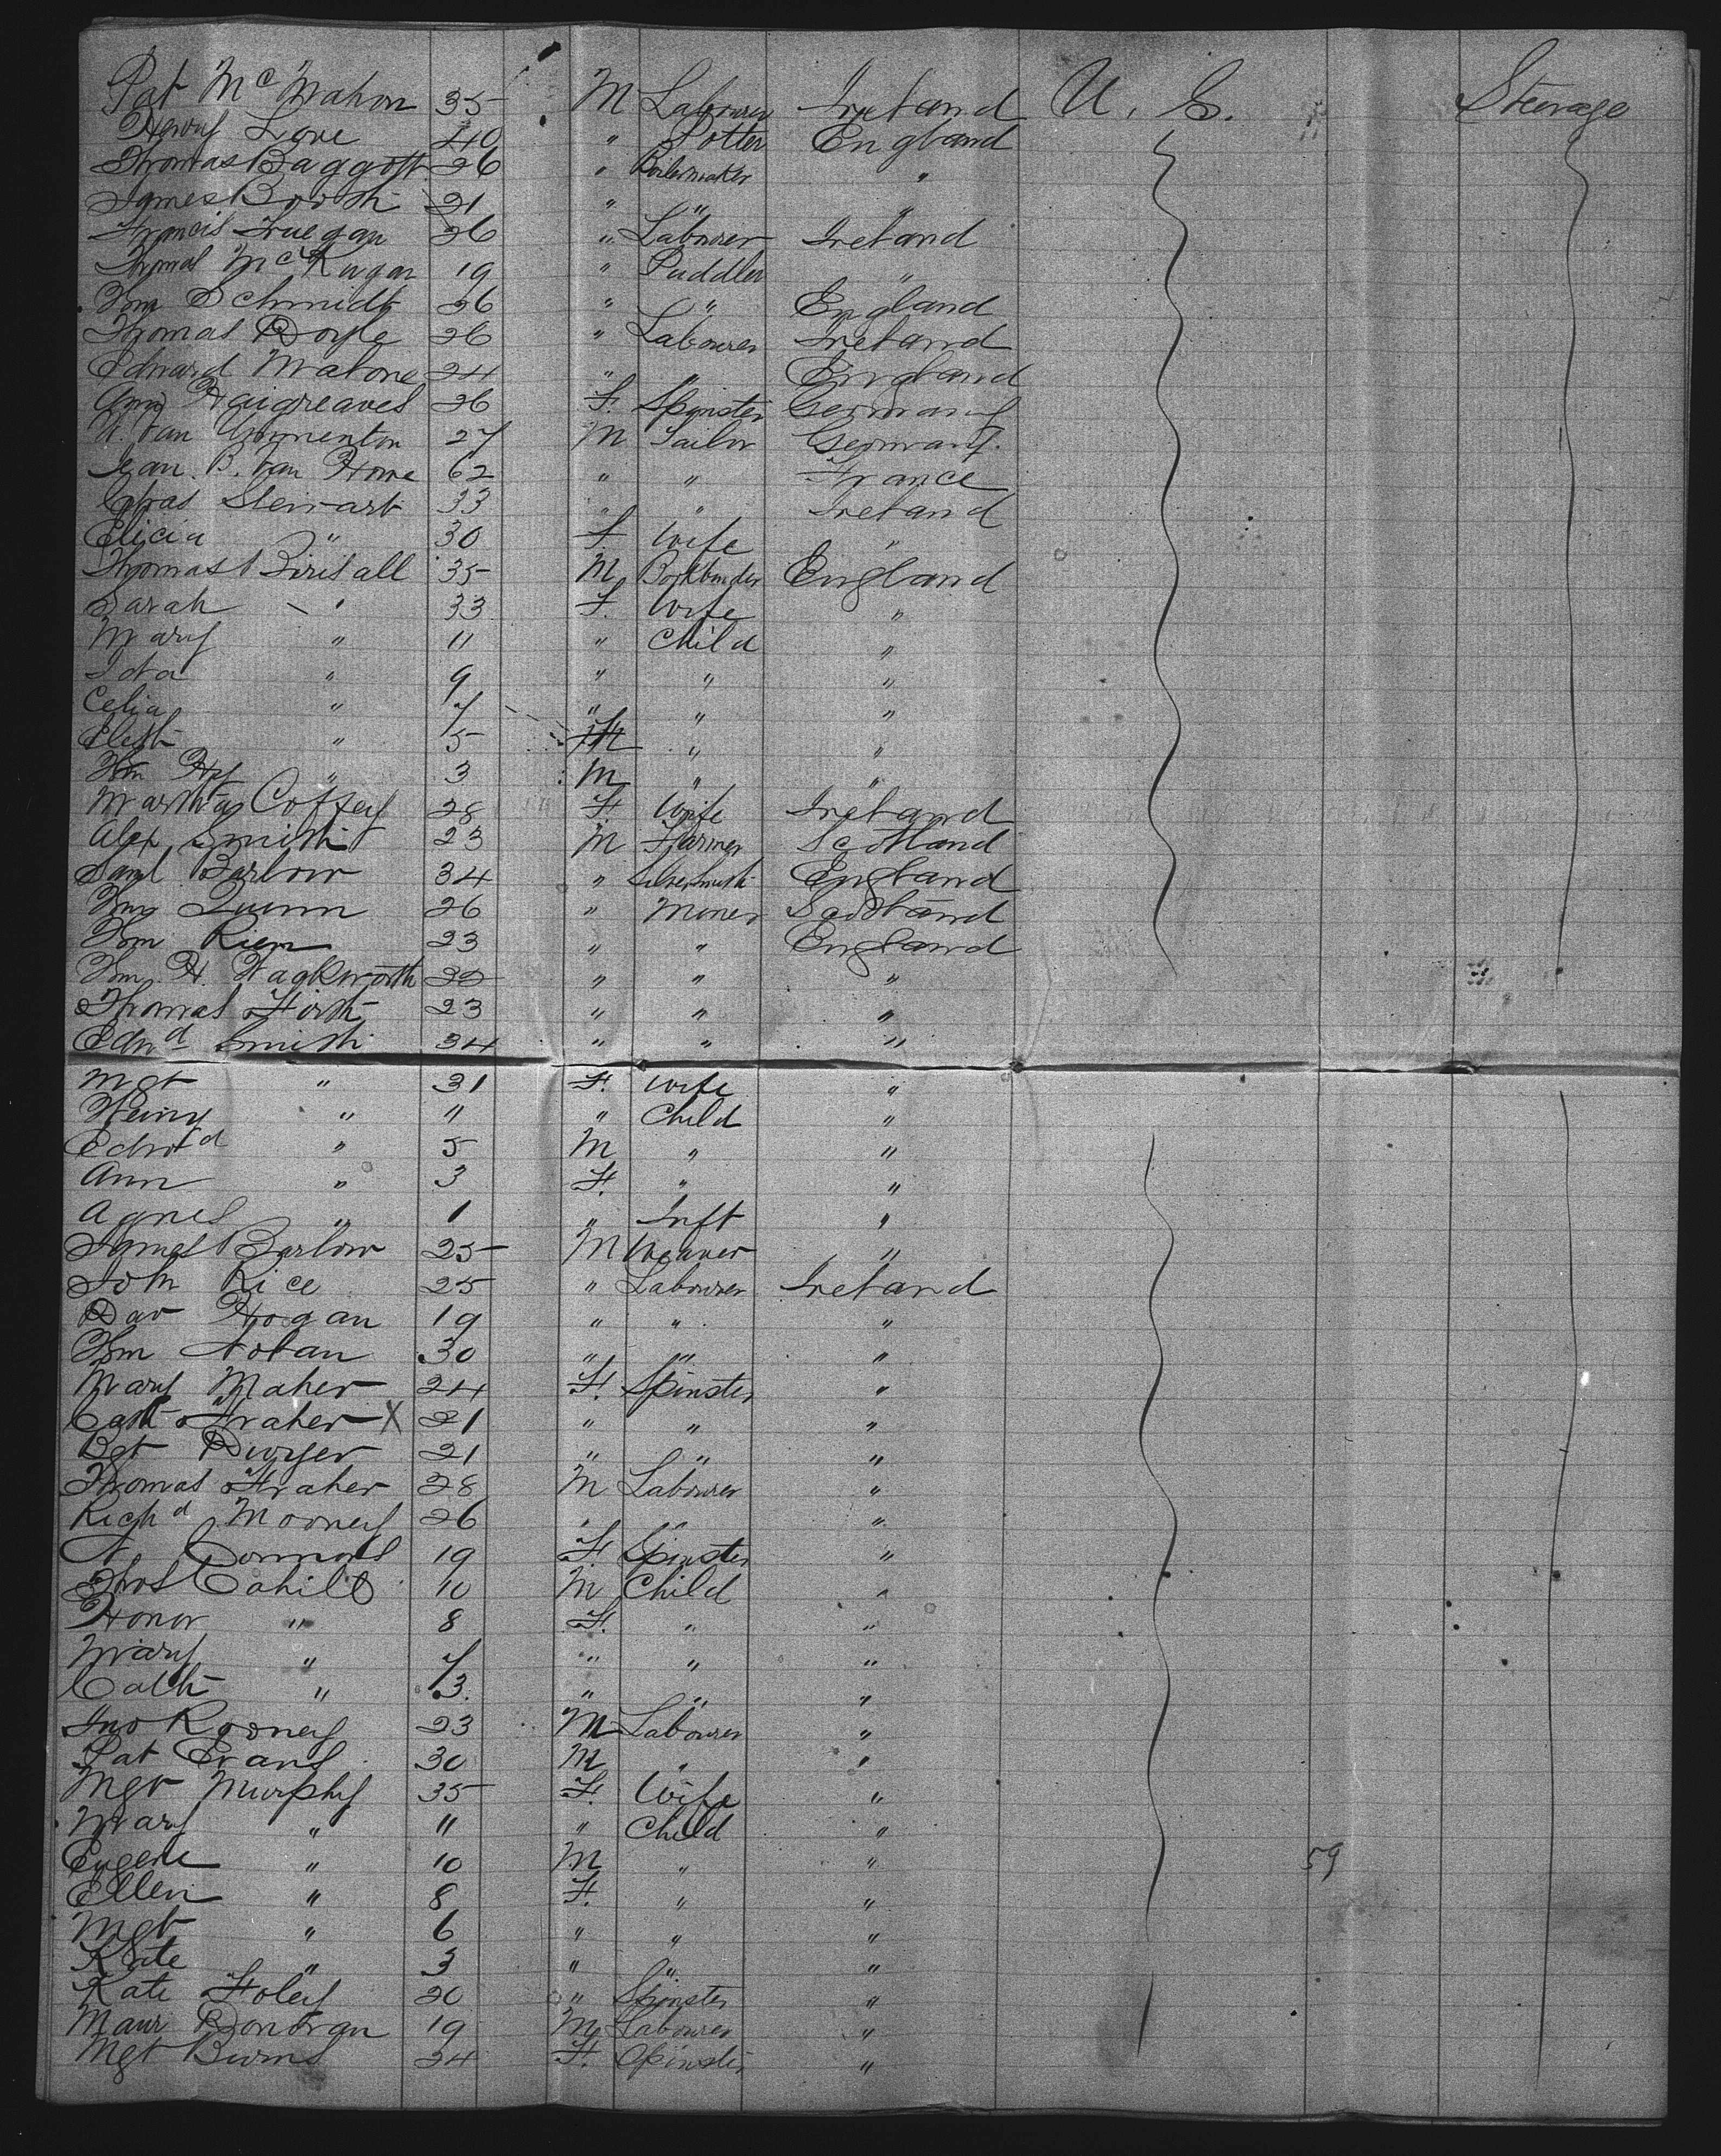 Pat McMahon 35 M Labourer Ireland U. S. Steerage
Henry Love 40 " Potter England
Thomas Baggott 26 " Boilermaker "
James Booth 21 " " "
Francis 26 " Labourer Ireland
Thomas 19 " Puddler "
Wm Schmidt 26 " " England
Thomas Doyle 26 " Labourer Ireland
Edward Malone 24 " " England
Ann Haigreaves 26 F. Spinster Germany
Van 27 M Tailor Germany.
Jean. B. Van Howe 62 " " France
Chas Stewart 33 " " Ireland
Elicia " 30 F Wife "
Thomas Birisall 35 M Bookbinder England
Sarah " 33 F. Wife "
Mary " 11 " Child "
Ida " 9 " " "
Celia " 7 " " "
" 5 " "
Wm Hy " 3 M " "
Martha Coffey 28 F. Wife Ireland
Alex Smith 23 M Farmer Scotland
Saml Barlow 34 " Silversmith England
Quinn 26 " Miner Scotland
Wm 23 " " England
Wm. H. Wagkworth " " "
Thomas Firth 23 " " "
Edwd Smith 34 " " "
Mgt " 31 F. Wife "
Henry " 11 " Child "
Edwd " 5 M " "
Ann " 3 F. " "
Agnes " 1 " Inft "
James Barlow 25 M Weaver "
John Rice 25 " Labourer Ireland
Dav Hogan 19 " " "
Wm Nolan 30 " " "
Mary Maher 24 F. Spinster "
Cath Fraher X 21 " " "
Bgt Dwyer 21 " " "
Thomas Fraher 28 M Labourer "
Richd Mooney 26 " " "
Connors 19 F. Spinster "
Thos Cahill 10 M Child "
Honor " 8 F. " "
Mary " 7 " " "
Cath " 3. " " "
Jno Rooney 23 M Labourer "
Pat Evans 30 M " "
Mgt Murphy 35 F. Wife "
Mary " 11 " Child "
Eugene " 10 M " " 59
Ellen " 8 F. " "
Mgt " 6 " " "
Kate " 3 " " "
Kate Foley 20 " Spinster "
Maur Donovan 19 M Labourer "
Mgt Burns 24 F. Spinster "